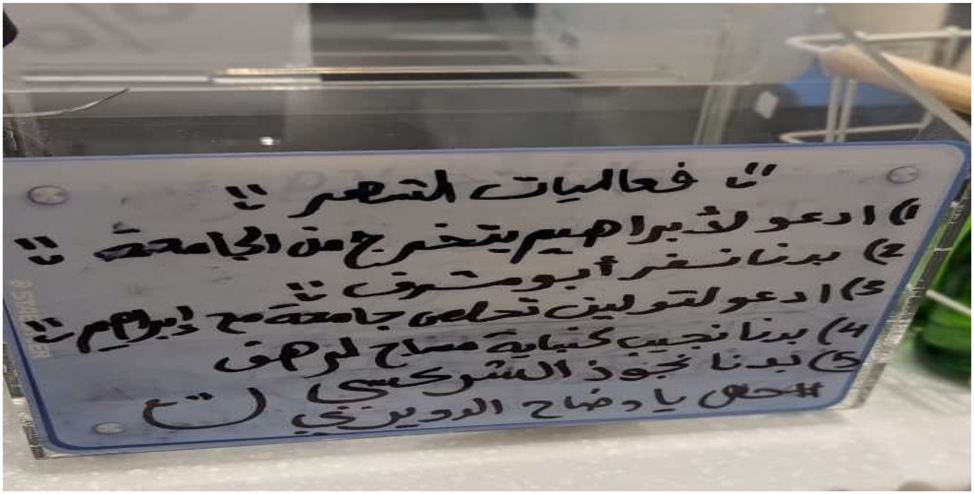 " فعاليات الشهر "
1) ادعو لأبراهيم يتخرج من الجامعة "
2) بدنا نسفر أبو مشرف "
3) ادعو لتولين تخلص جامعة مع إبراهيم "
4) بدنا نجيب كنباية مساج لرهف
5) بدنا نجوز الشركسي
# حلق يا وضاح الدويري